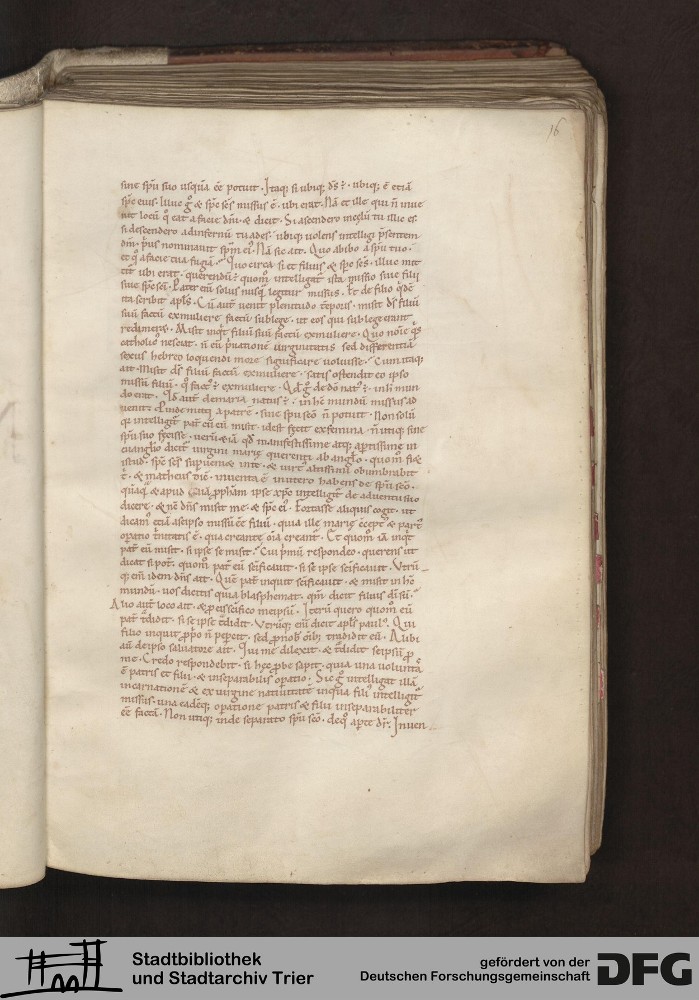 16
sine spū suo usquā ēē potuit. Itaq; si ubiq; d̄s ÷. ubiq; ē etiā
sp̄c eius. Illuc g° & sp̄c sc̄s missus ē. ubi erat. Nā et ille qui n̄ inue
nit locū q° eat a facie dn̄i. & dicit. Si ascendero in celū tu illic es.
si descendero ad infernū tu ades. ubiq; uolens intelligi p̄sentem
dn̄m. p̄us nominauit sp̄m ei᾽. Nā sic ait. Quo abibo a spū tuo.
et q° a facie tua fugiā. Quo circa si et filius & sp̄c sc̄s. illuc mit
tit᾽ ubi erat. querendū ÷ quom̄ intelligat᾽ ista missio siue filii
siue sp̄c sc̄i. Pater eñ solus nusq̄ legitur missus. Et de filio q°dē
ita scribit apl̄s. Cū aut̄ uenit plenitudo tēporis. misit d̄s filiū
suū factū ex muliere factū sub lege. ut eos qui sub lege erant
redimeret. Misit inq̄t filiū suū factū ex muliere. Quo noīe q̄s
catholic᾽ nesciat. n̄ eū p̄uatione uirginitatis sed differentiā
sexus hebreo loquendi more significare uoluisse. Cum itaq;
ait. misit d̄s filiū factū ex muliere. satis ostendit eo ipso
missū filiū. q° fact᾽ ÷ ex muliere. Qd̄ g° de dō nat᾽ ÷. in h̄ mun
do erat. Id aut̄ de maria natus ÷. in hē mundū missus ad
uenit. Proinde mitti a patre. sine spū scō n̄ potuit. Non solū
q̄ intelligit᾽ pat̄ cū eū misit. id est fecit ex femina. n̄ utiq; sine
spū suo fecisse. uerū &iā qd̄ manifestissime atq; aptissime in
euanglio dicit᾽ uirgini marię querenti ab anglo. quom̄ fi&
istud. sp̄c sc̄s supueni& in te. & uirt᾽ altissimi obumbrabit
t̄. & matheus dic̄. inuenta ē in utero habens de spū scō.
quāq̄ & apud esaiā pph&am ipse xp̄c intelligit᾽ de aduentu suo
dicere. & nc̄ dn̄s misit me. & sp̄c ei᾽. Fortasse aliquis cogit. ut
dicam᾽ etiā a seipso missū ēē filiū. quia ille marię cēcept᾽ & part᾽
opatio t̄nitatis ē. qua creante oīa creant᾽. Et quom̄ iā inq̄t
pat̄ eū misit. si ipse se misit. Cui p̄mū respondeo. querens ut
dicat si pot̄. quom̄ pat̄ eū scificauit. si se ipse scificauit. Verū
q; eñ idem dn̄s ait. Quē pat̄ inquit scificauit. & misit in hē
mundū. uos dicitis quia blasphemat. qm̄ dixit filius d̄i sū.
Alio aut̄ loco ait. & p eis scifico meipsū. Iterū quero quom̄ eū
pat̄ t̄didit. si se ipse t̄didit. Verūq; eñ dicit apl̄s paul᾽. Qui
filio inquit pprio n̄ pepcit. sed p nob᾽ omīb; tradidit eū. Alibi
aut̄ de ipso saluatore ait. Qui me dilexit. & t̄didit seipsū p
me. Credo respondebit. si hęc pbe sapit. quia una uoluntas
ē patris et filii. & inseparabilis opatio. Sic g° intelligat illā
incarnationē & ex uirgine natiuitatē in qua fili᾽ intelligit᾽
missus. una eadēq; opatione patris & filii inseparabiliter
ēē factā. Non utiq; inde separato spū scō. de q° apte dr̄. Inuen
Stadtbibliothek
und Stadtarchiv Trier
gefördert von der
Deutschen Forschungsgemeinschaft
DFG